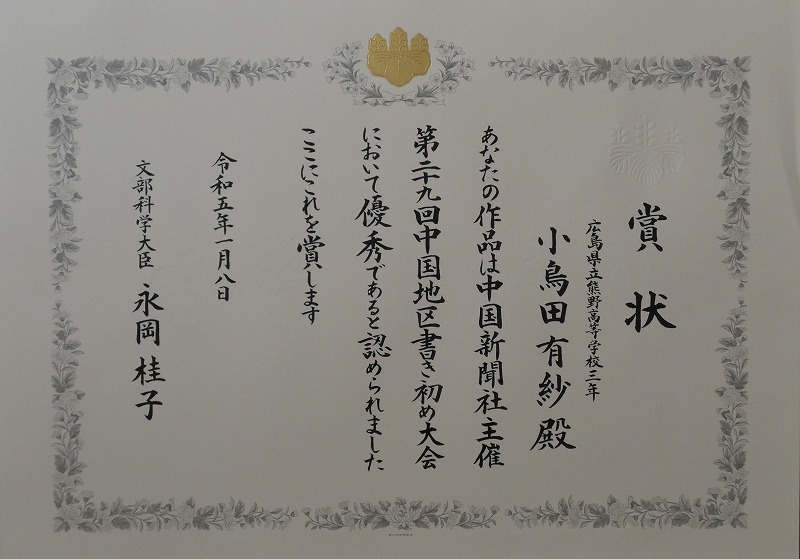 賞状
広島県立熊野高等学校三年
小鳥田有紗殿
あなたの作品は中国新聞社主催
第二十九回中国地区書き初め大会
において優秀であると認められました
ここにこれを賞します
令和五年一月八日
文部科学大臣 永岡桂子